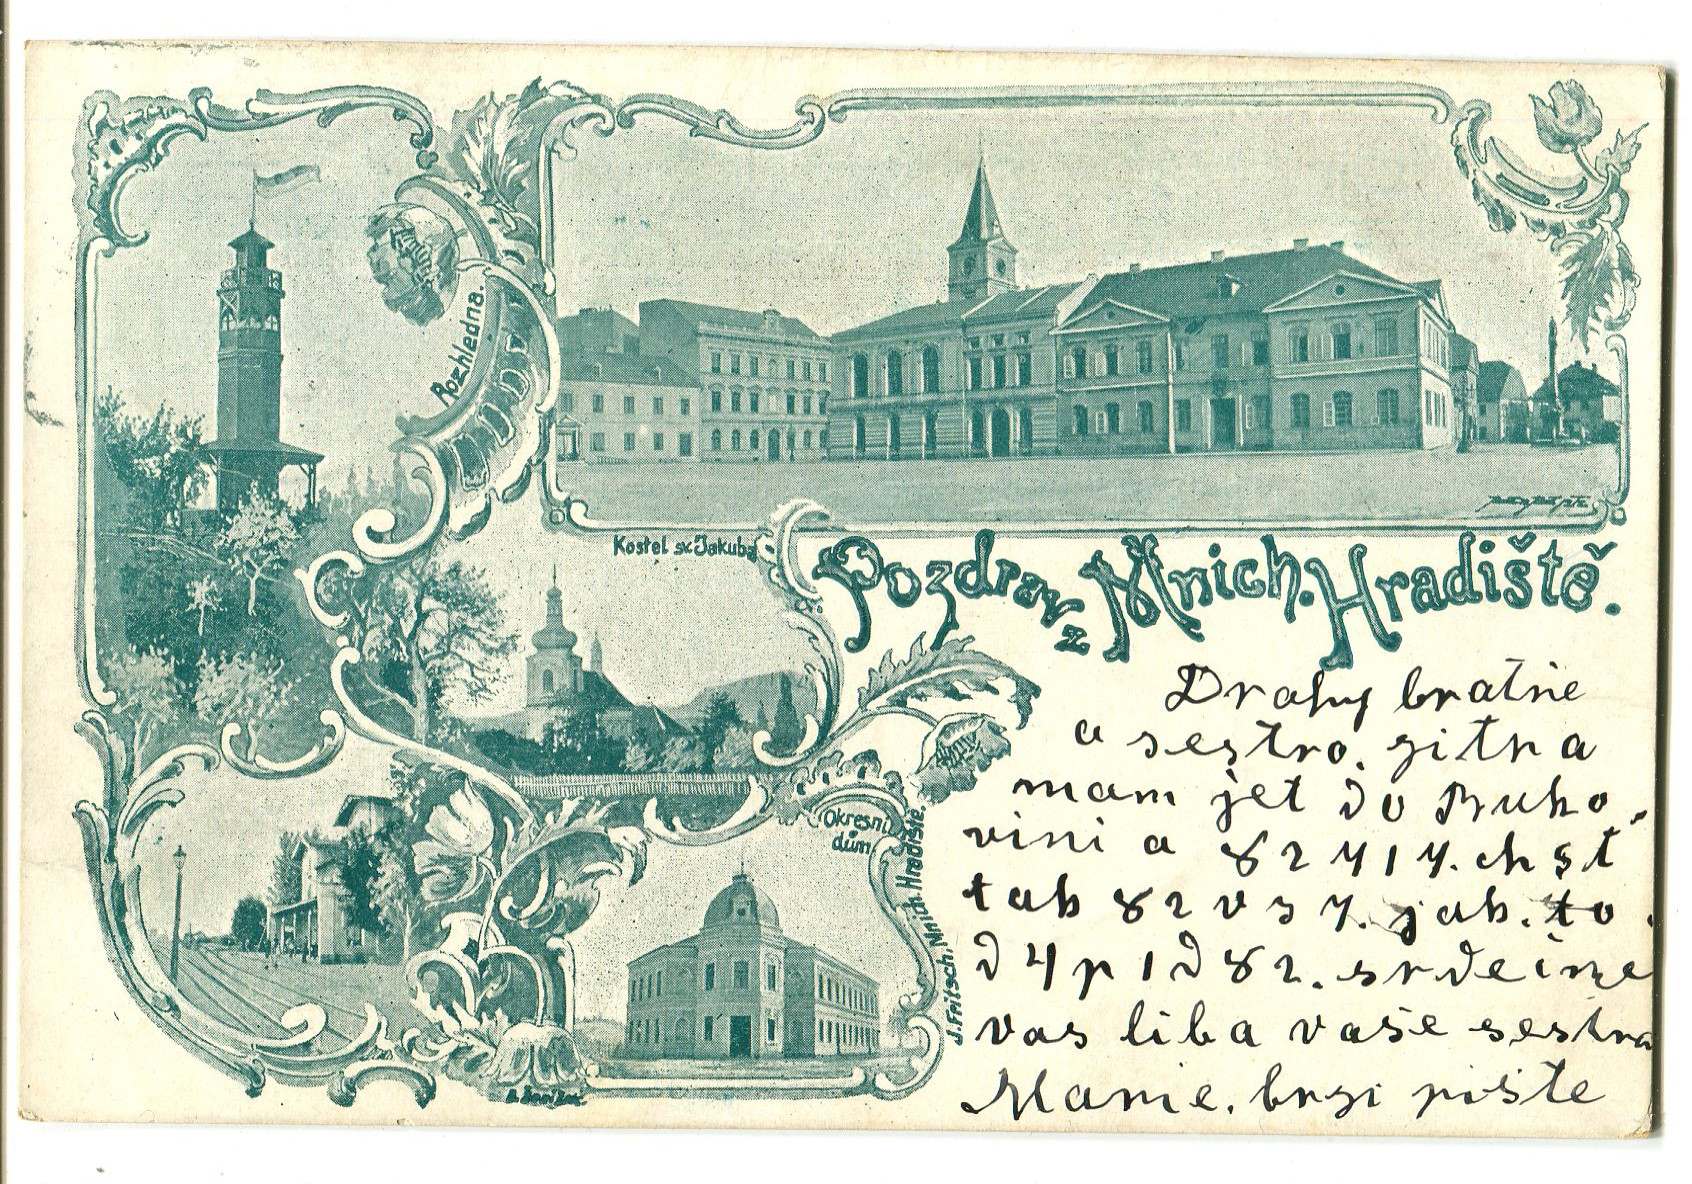 Rozhledna.
Kostel sv. Jakuba
Pozdrav z Mnich. Hradiště.
Okresní
dům
J. Fritsch, Mnich. Hradiště.
Drahy bratrie
a sestro. zitra
mam jet do Buko
vini a 82414. chst
tab 82v37. jak. to.
d4p1d82. srdeině
vas liba vaše sestra
Marie. brzi pište